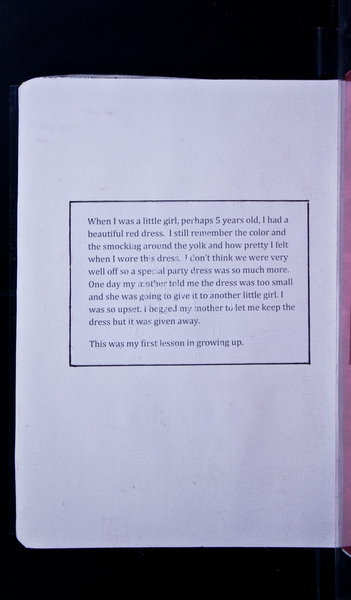 When I was a little girl, perhaps 5 years old, I had a
beautiful red dress. I still remember the color and
the smocking around the yolk and how pretty I felt
when I wore this dress. I don't think we were very
well off so a special party dress was so much more.
One day my mother told me the dress was too small
and she was going to give it to another little girl. I
was so upset. I begged my mother to let me keep the
dress but it was given away.
This was my first lesson in growing up.